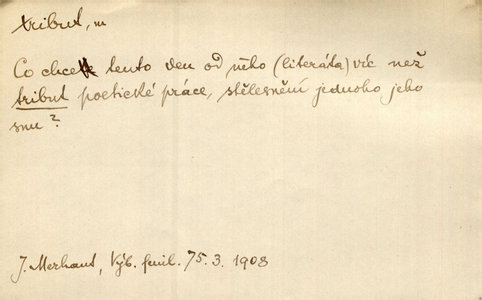 tribut, m
Co chce tento den od něho (literáta) víc než
tribut poetické práce, stělesnění jednoho jeho
snu?
J. Merhaut, Výb. feuil. 75. 3. 1908